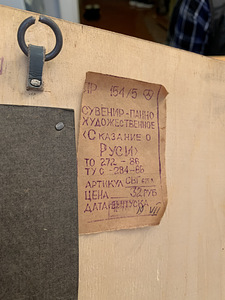 ПР 154/5
СУВЕНИР-ПАННО
ХУДОЖЕСТВЕННОЕ
«СКАЗАНИЕ О
РУСИ»
ТО 272-86
ТУ О -284-86
АРТИКУЛ
ЦЕНА 32 РУБ
ДАТА ВЫПУСКА VII